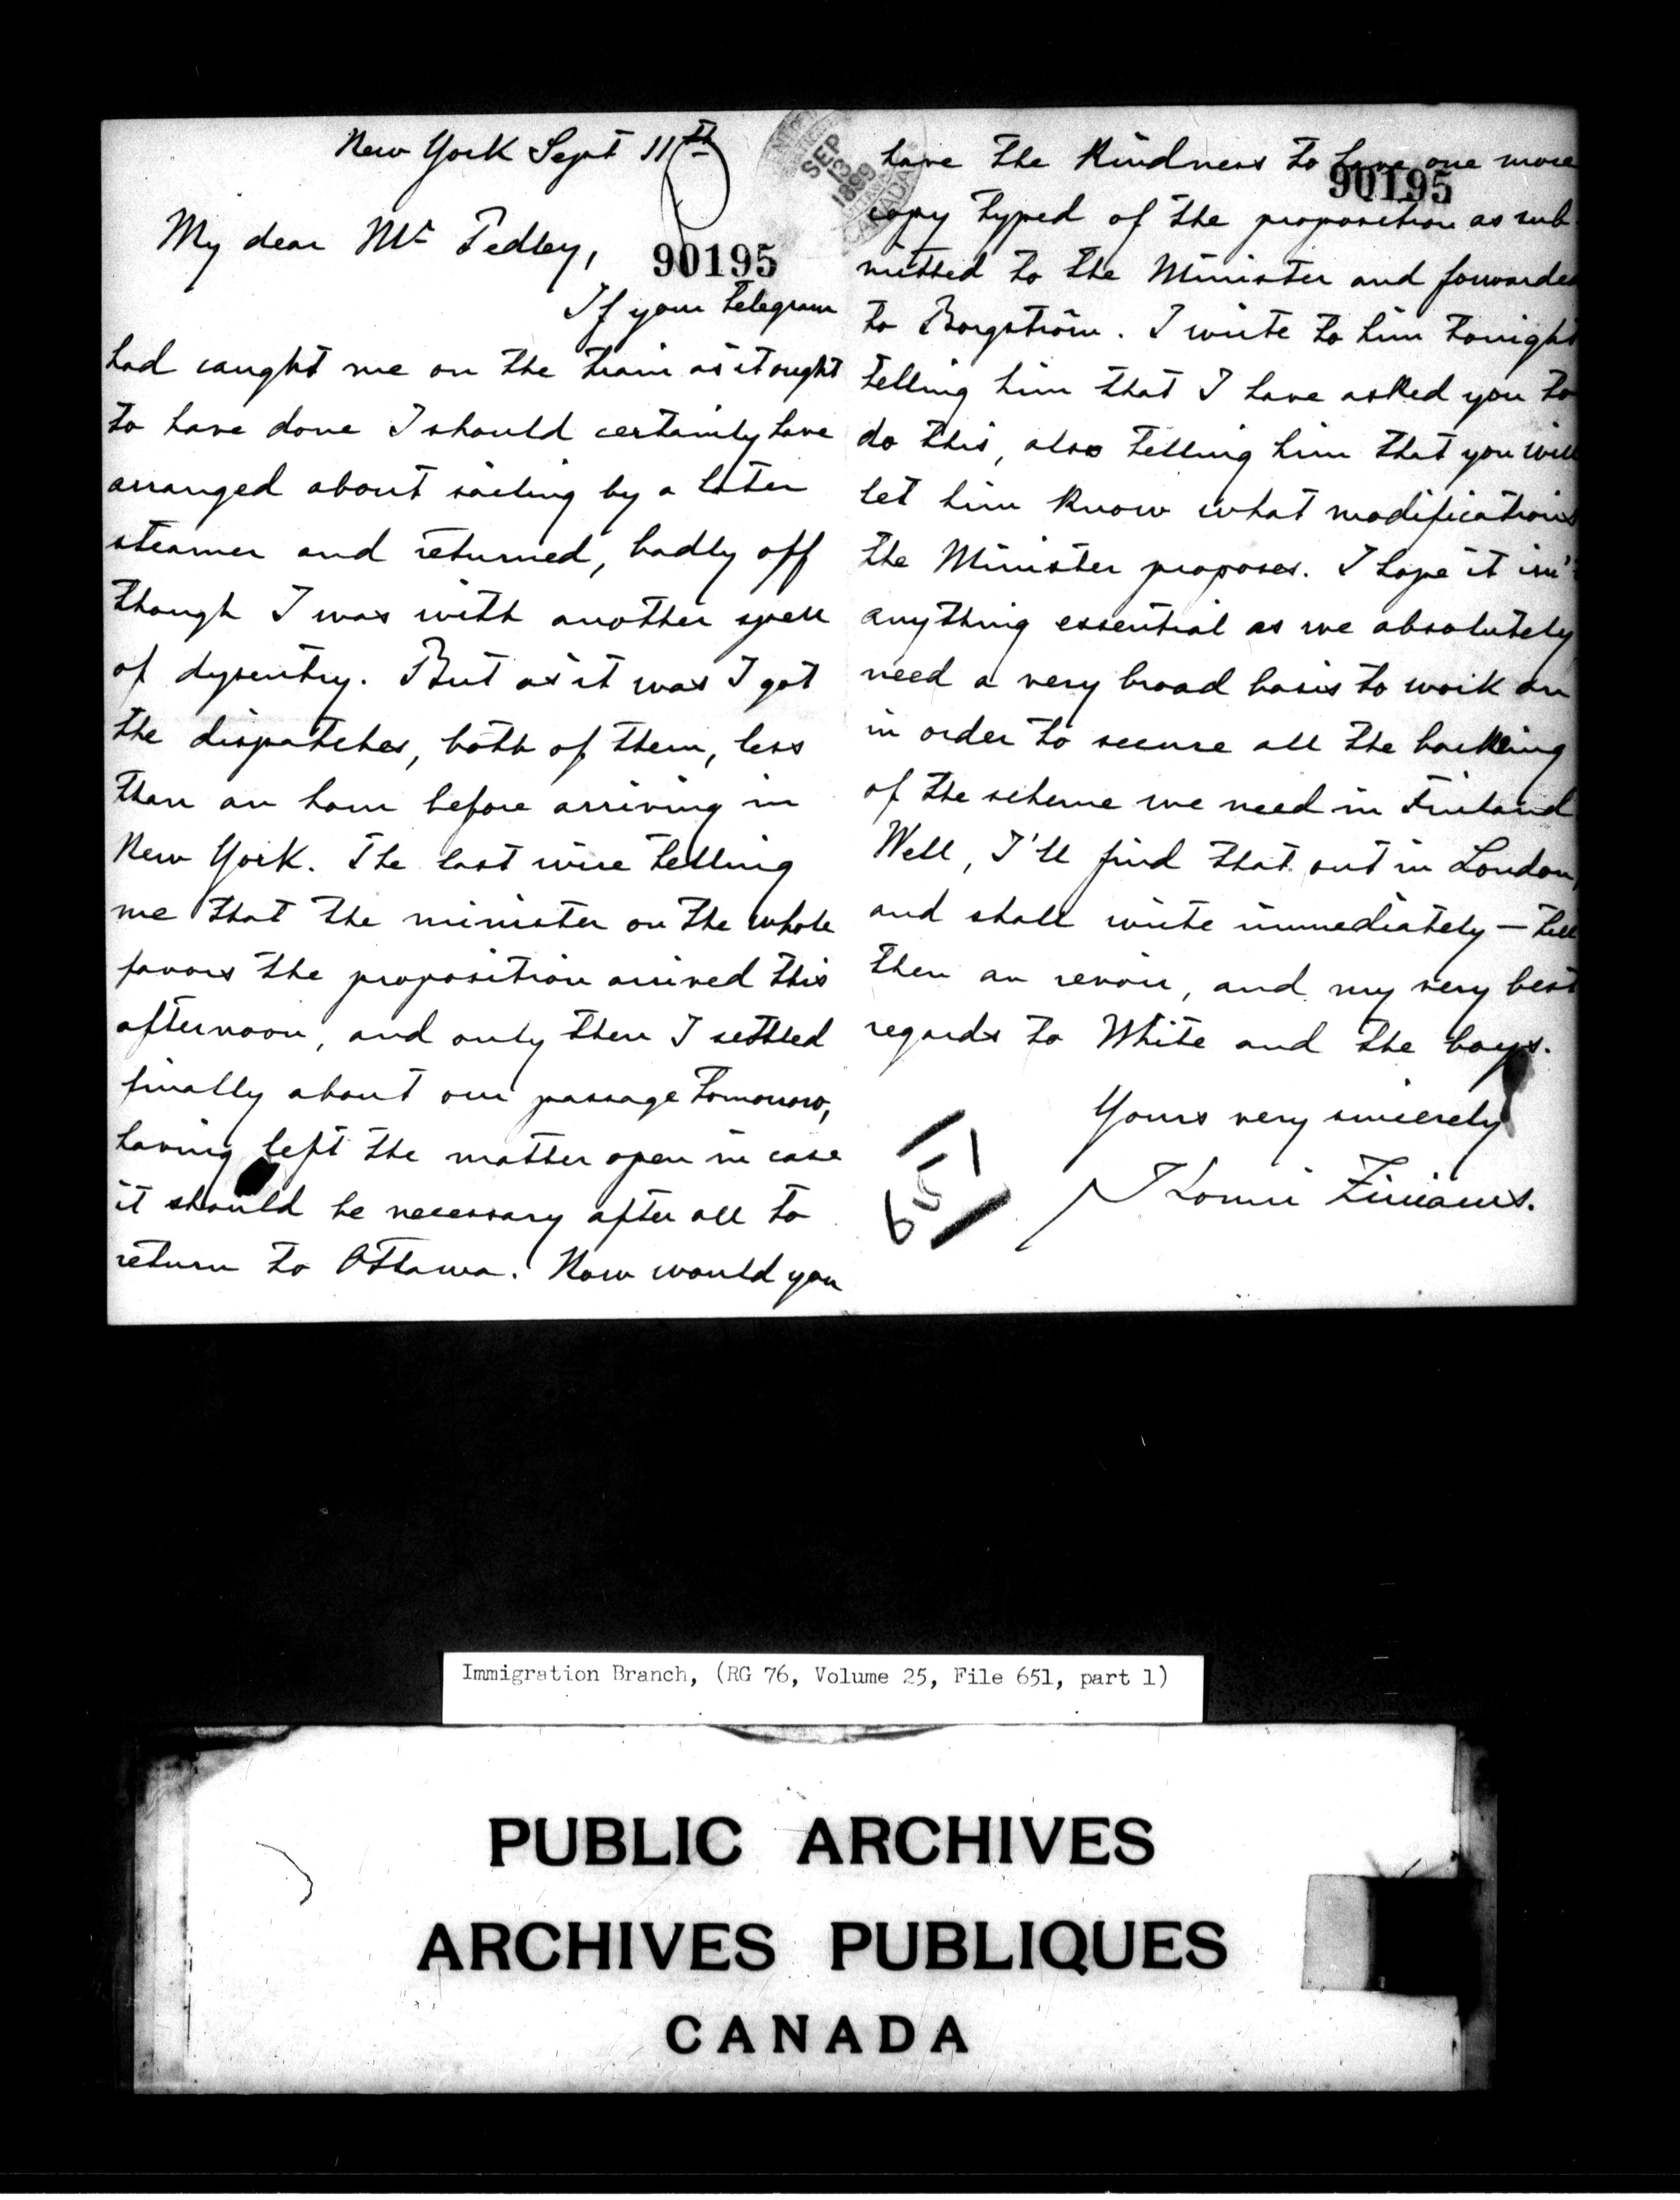 New York Sept 11th
My dear Mr Pedley,
90195
If your telegram
had caught me on the train as it ought
to have done I should certainly have
arranged about sailing by a later
steamer and returned, badly off
though I was with another spell
of dysentry. But as it was I got
the dispatches, both of them, less
than an hour before arriving in
New York. The last wire telling
me that the minister on the whole
favors the proposition arrived this
afternoon, and only then I settled
finally about our passage tomorrow,
having left the matter open in case
it should be necessary after all to
return to Ottawa. Now would you
SEP 13 1899
CANADA
have the kindness to have one more
90195
copy typed of the proposition as sub-
mitted to the Minister and forwarded
to Borgström. I write to him tonight
telling him that I have asked you to
do this, also telling him that you will
let him know what modifications
the Minister proposes. I hope it isn't
anything essential as we absolutely
need a very broad basis to work on
in order to secure all the backing
of the scheme we need in Finland
Well, I'll find that out in London,
and shall write immediately — till
then au revoir, and my very best
regards to White and the boys.
Yours very sincerely
Konni Zilliacus.
651
Immigration Branch, (RG 76, Volume 25, File 651, part 1)
PUBLIC ARCHIVES
ARCHIVES PUBLIQUES
CANADA